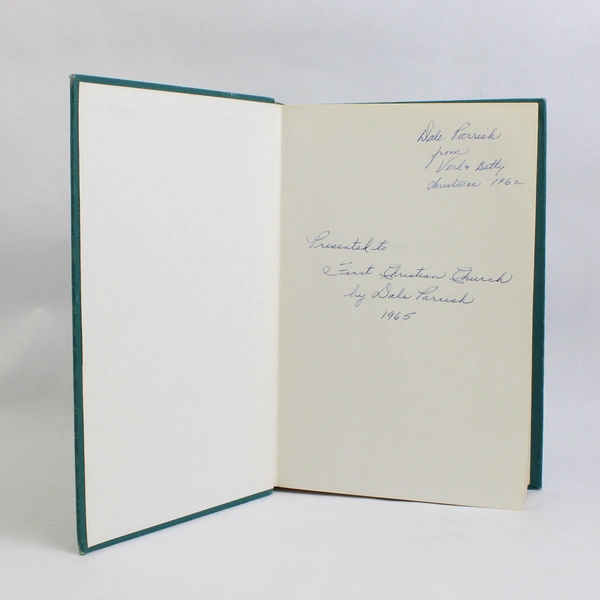 Dale Parrish
from
Verl & Betty
Christmas 1962
Presented to
First Christian Church
by Dale Parrish
1965